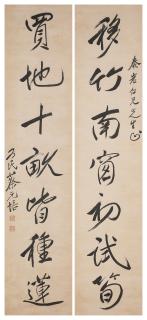 泰岩仁兄先生正
移竹南窗初試筍
買地十畝皆種蓮
孑民蔡元培